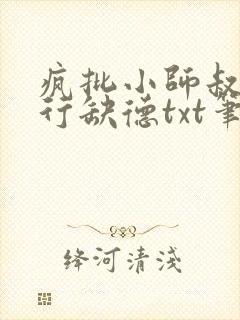 疯批小師叔
行缺德txt筆
绛河清淺